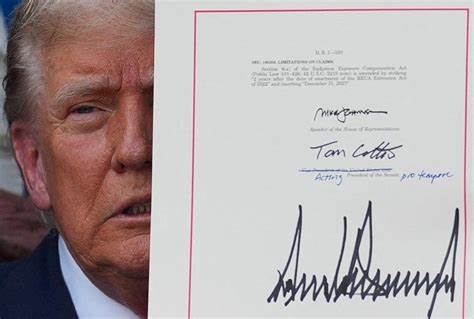 H. R. 1—330
LIMITATIONS ON CLAIMS.
Section 8(a) of the Radiation Exposure Compensation Act
(Public Law 101–426; 42 U.S.C. 2210 note) is amended by striking
“2 years after the date of enactment of the RECA Extension Act
of 2022” and inserting “December 31, 2027”.
Mike Johnson
Speaker of the House of Representatives.
Tom Cotton
Vice President of the United States and
Acting President of the Senate pro tempore